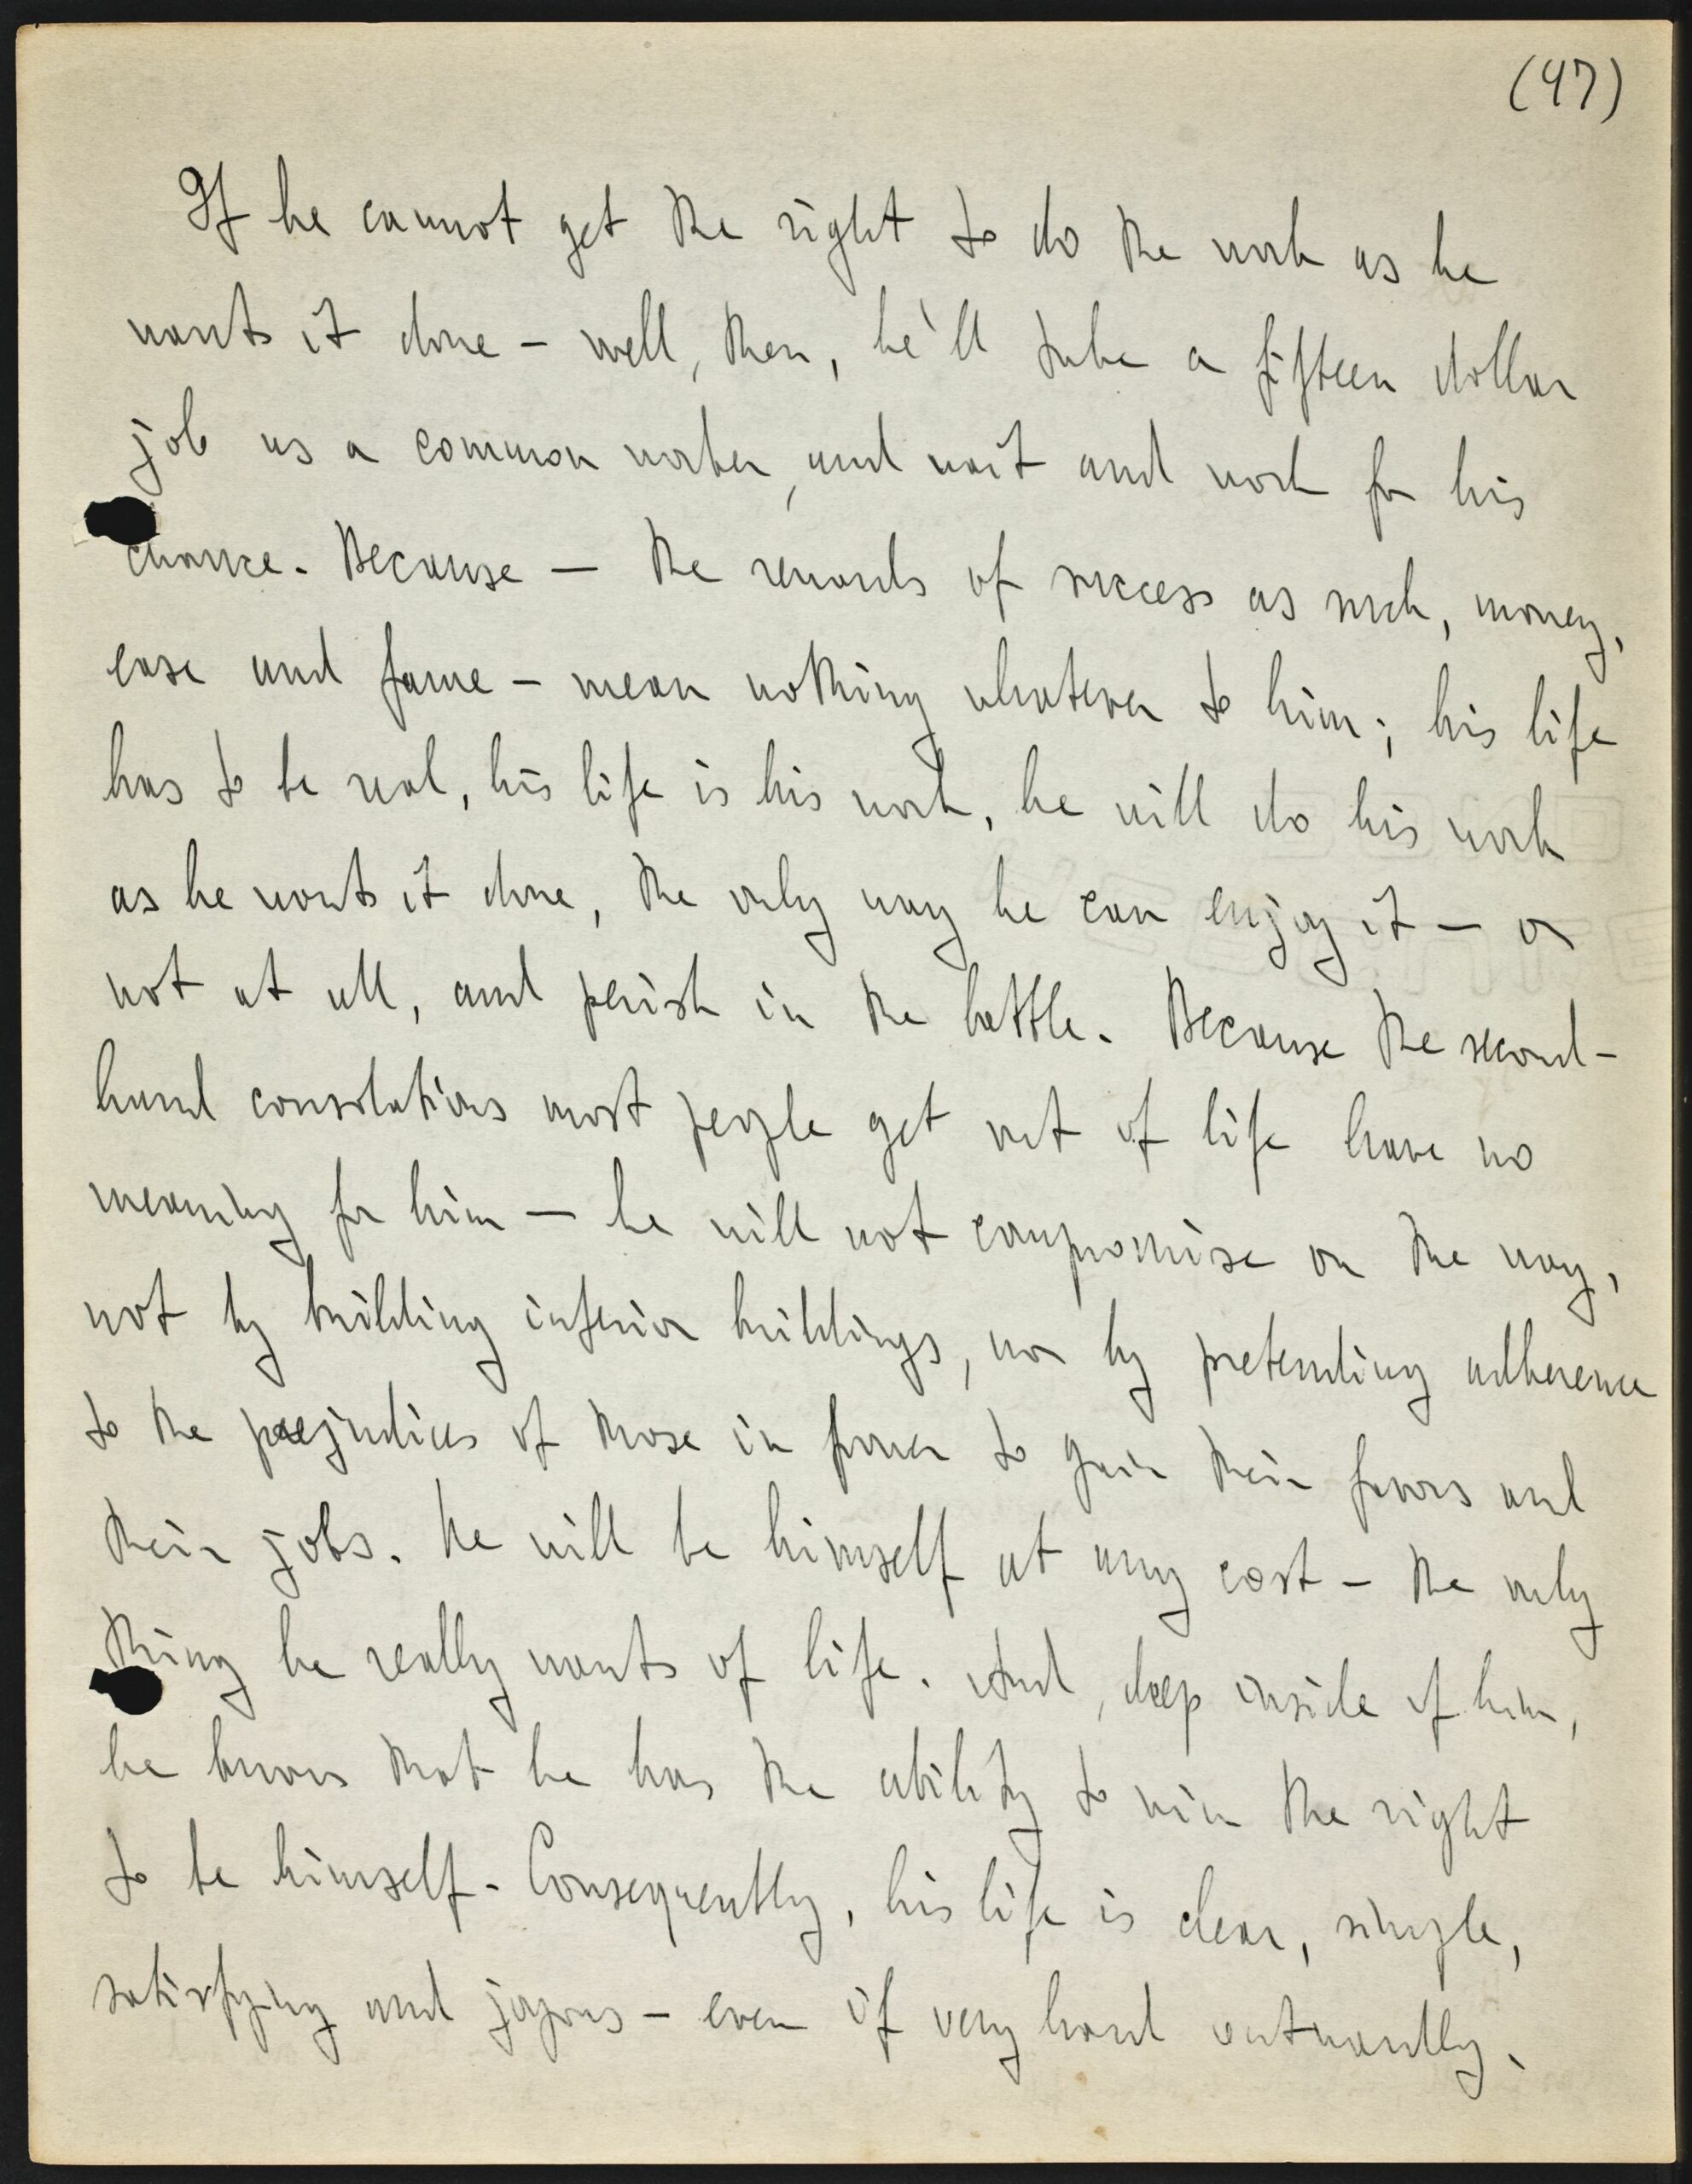 (47)
If he cannot get the right to do the work as he
wants it done – well, then, he'll take a fifteen dollar
job as a common worker, and wait and work for his
chance. Because — the rewards of success as such, money,
ease and fame – mean nothing whatever to him; his life
has to be real, his life is his work, he will do his work
as he wants it done, the only way he can enjoy it — or
not at all, and perish in the battle. Because the second-
hand consolations most people get out of life have no
meaning for him — he will not compromise on the way,
not by building inferior buildings, nor by pretending adherence
to the prejudices of those in power to gain their favors and
their jobs. He will be himself at any cost – the only
thing he really wants of life. And, deep inside of him,
he knows that he has the ability to win the right
to be himself. Consequently, his life is clear, simple,
satisfying and joyous – even if very hard outwardly.